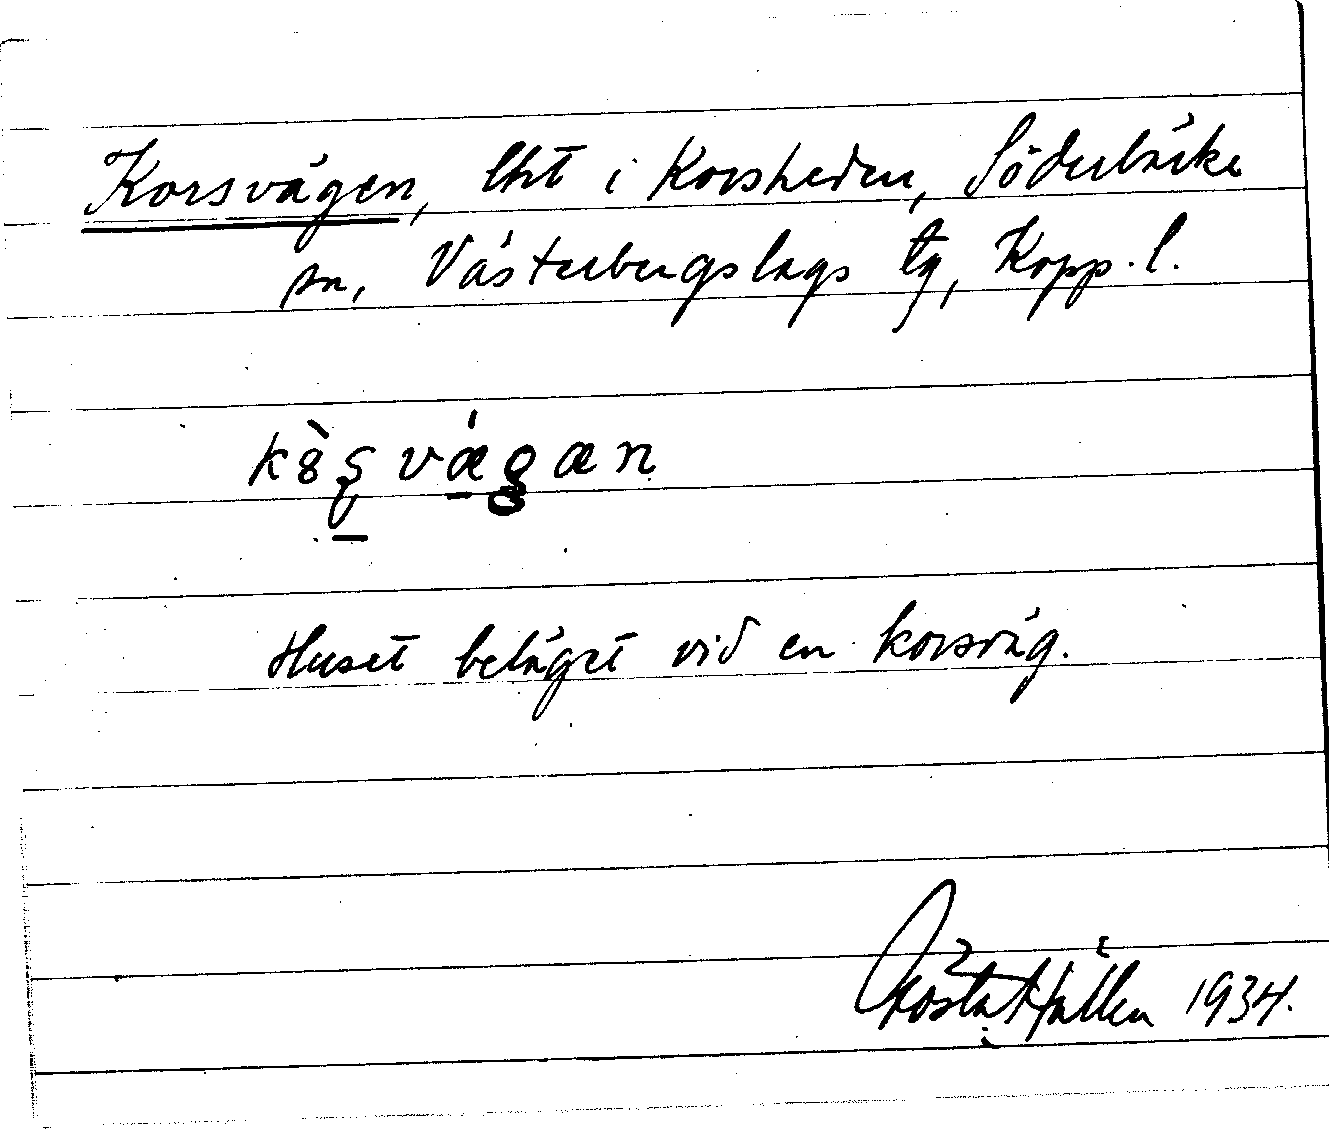 Korsvägen, lht i Korsheden, Söderbärke
sn, Västerbergslags tg, Kopp. l.
Huset beläget vid en korsväg.
Gösta Hällen 1934.